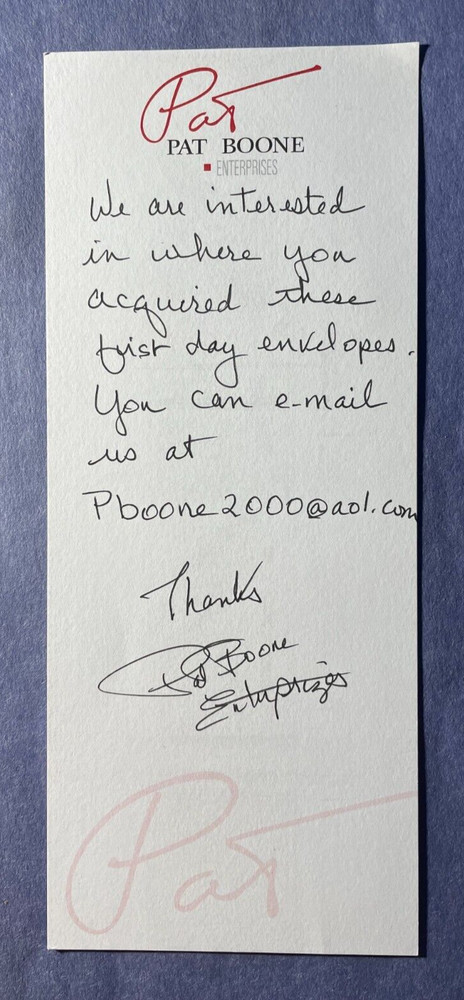 Pat
PAT BOONE
ENTERPRISES
We are interested
in where you
acquired these
first day envelopes.
You can e-mail
us at
Pboone2000@aol.com
Thanks
Pat Boone
Enterprizes
Pat